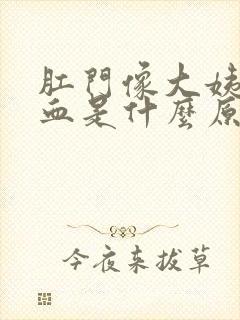 肛門像大姨
血是什麼原
今夜来拔草